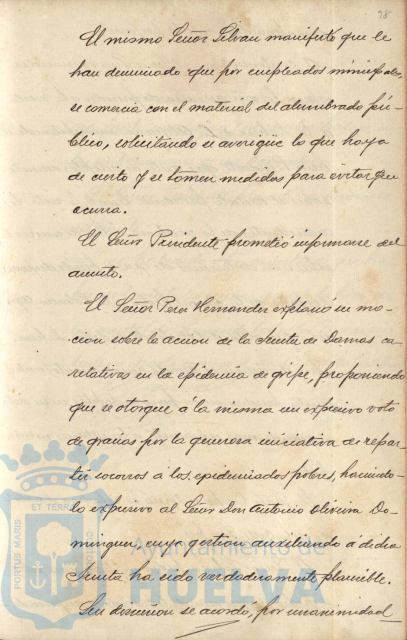 98
El mismo Señor Silvan manifestó que le
han denunciado que por empleados municipales,
se comercia con el material del alumbrado pú-
blico, solicitando se averigüe lo que haya
de cierto y se tomen medidas para evitar que
ocurra.
El Señor Presidente prometió informarse del
asunto.
El Señor Perez Hernandez explanó su mo-
cion sobre la accion de la Junta de Damas ca-
ritativas en la epidemia de gripe, proponiendo
que se otorgue á la misma un expresivo voto
de gracias por la generosa iniciativa de repar-
tir socorros a los epidemiados pobres, haciendo-
lo expresivo al Señor Don Antonio Oliveira Do-
minguez, cuya gestion auxiliando á dicha
Junta ha sido verdaderamente plausible.
Sin discusion se acordó, por unanimidad
PORTUS MARIS
ET TERRAE
Ayuntamiento de
HUELVA